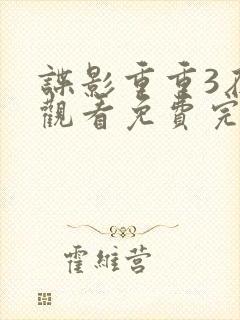 諜影重重3
觀看免費完
霍維营